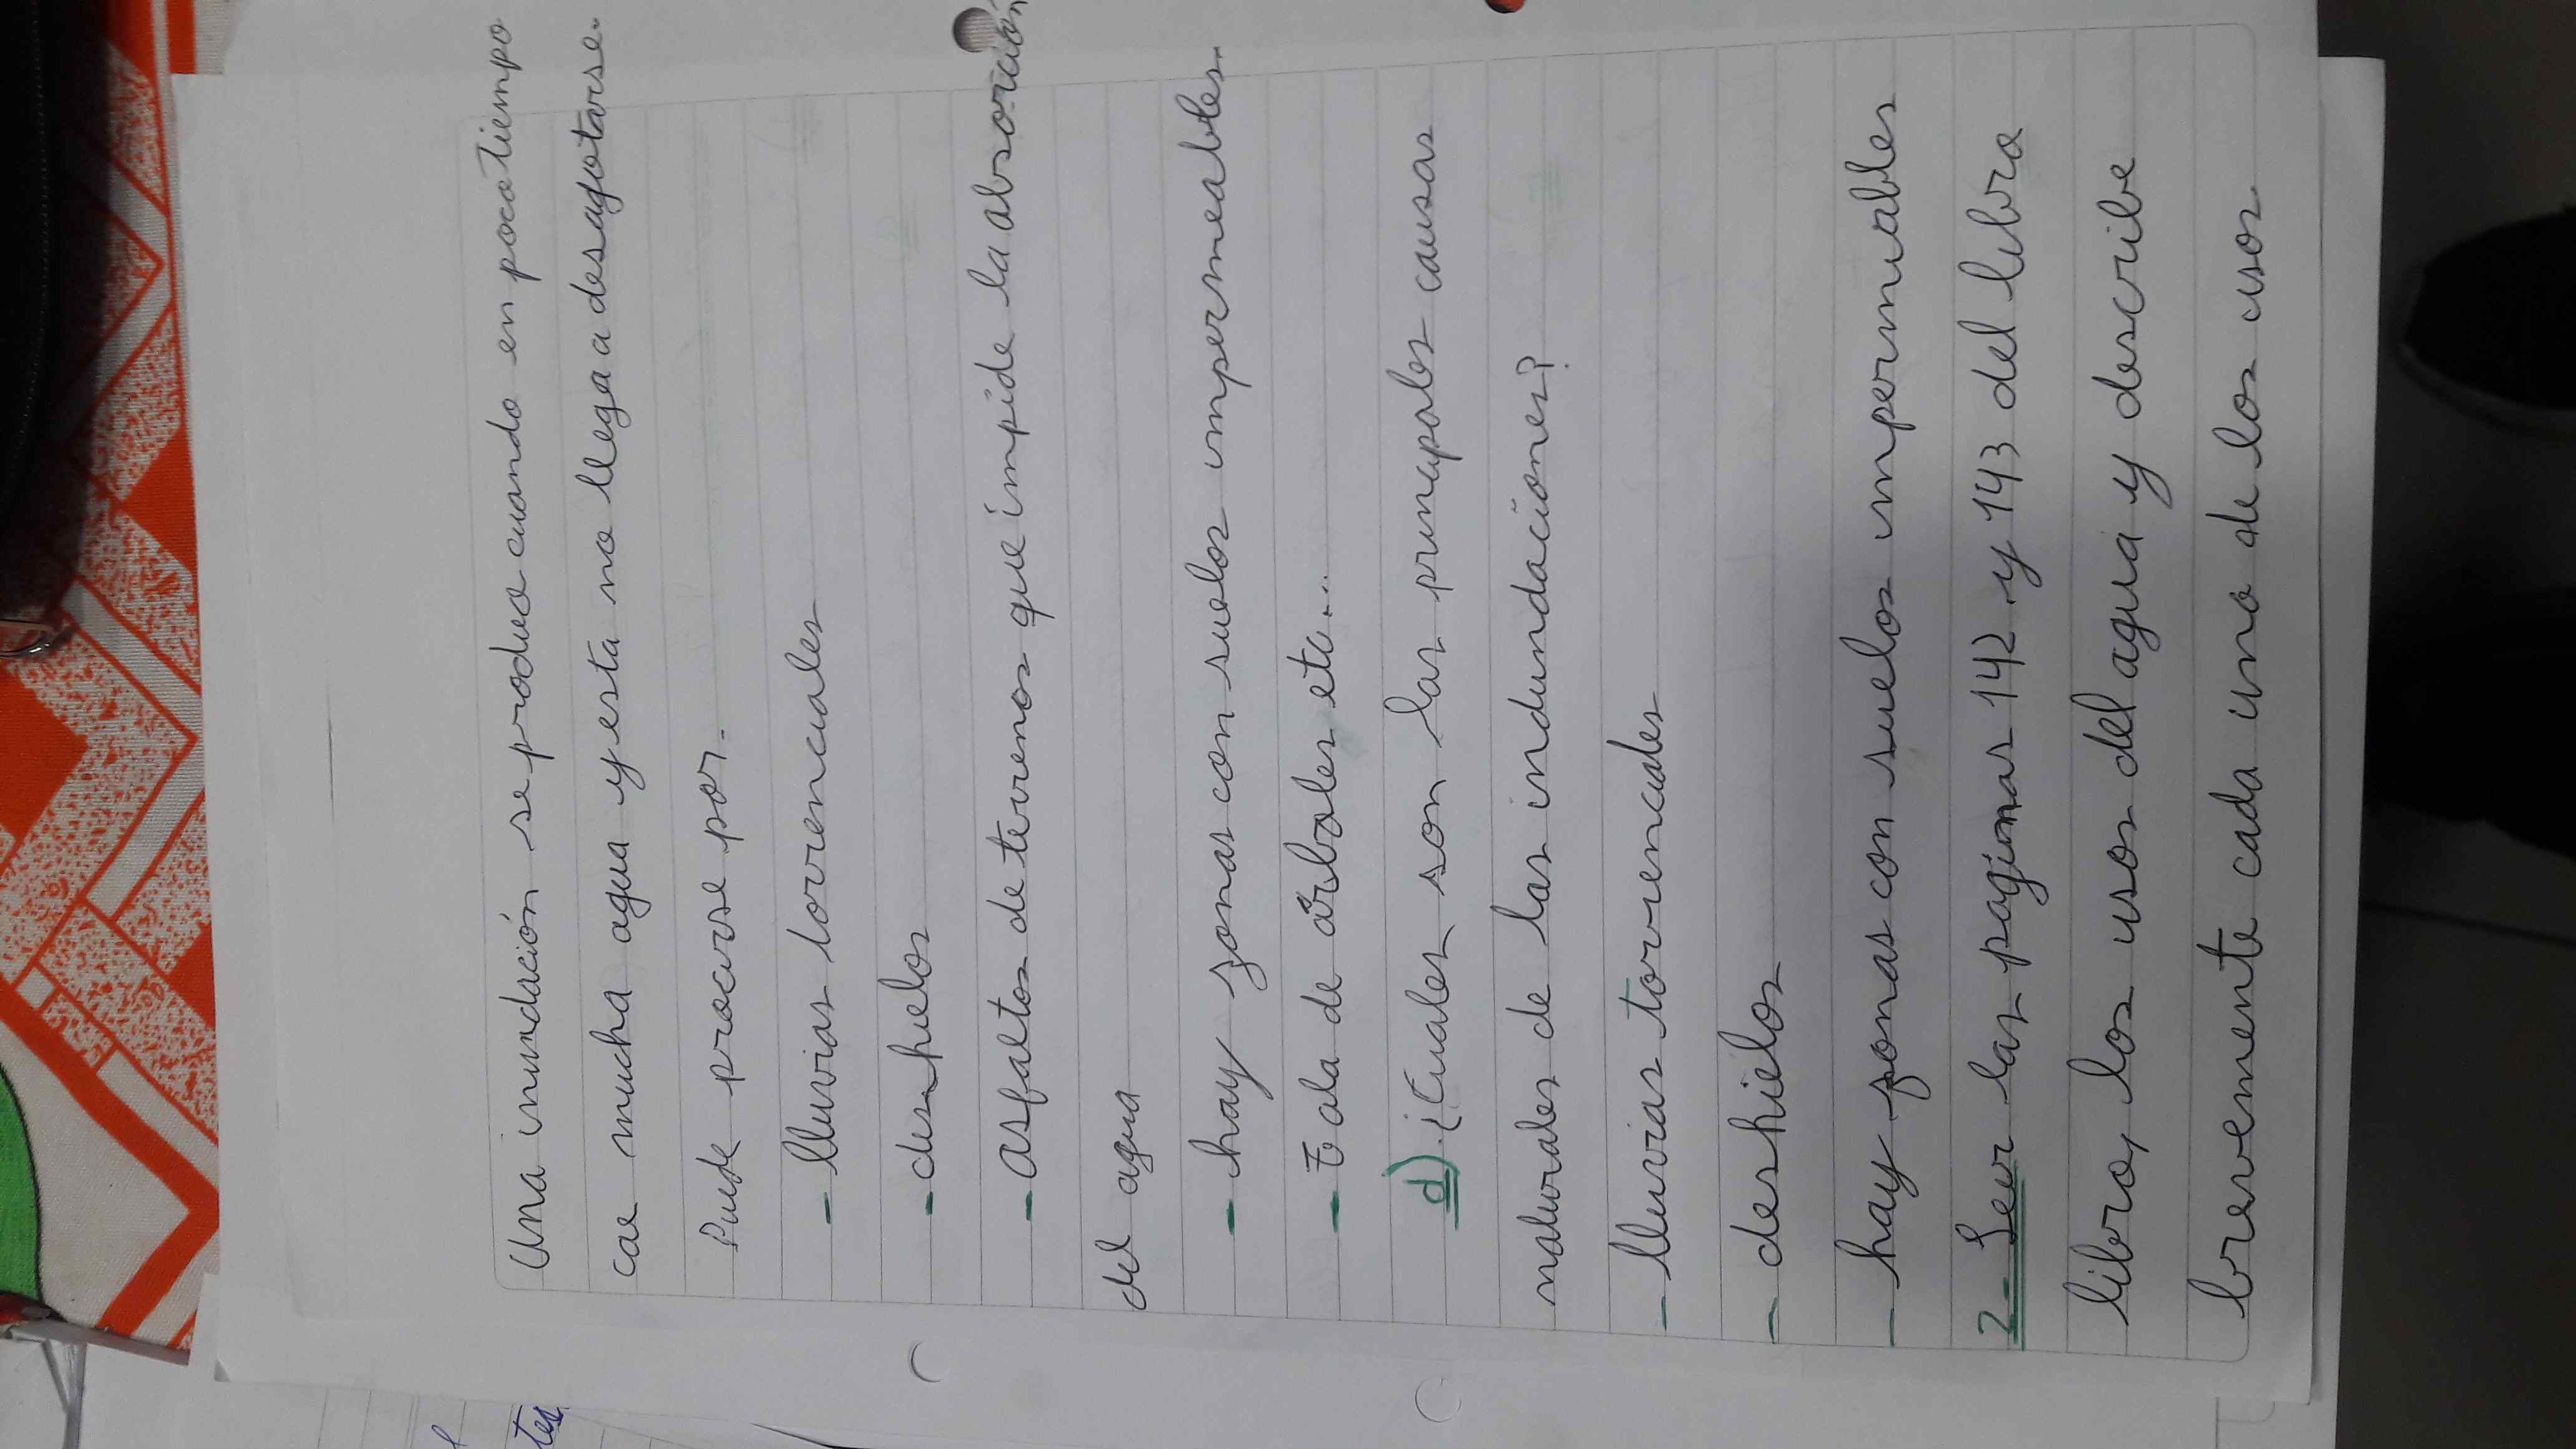 Una inundación se produce cuando en poco tiempo
cae mucha agua y esta no llega a desagotarse.
Puede procurse por.
- lluvias torrenciales
- deshielos
- asfaltos de terrenos que impide la absorción
del agua
- hay zonas con suelos impermeables.
- Tala de árboles etc...
d) ¿Cuáles son las principales causas
naturales de las indundaciones?
- lluvias torrenciales
- deshielos
- hay zonas con suelos impermiables
2- Leer las paginas 142 y 143 del libro
libro, los usos del agua y describe
brevemente cada uno de los usos
tes